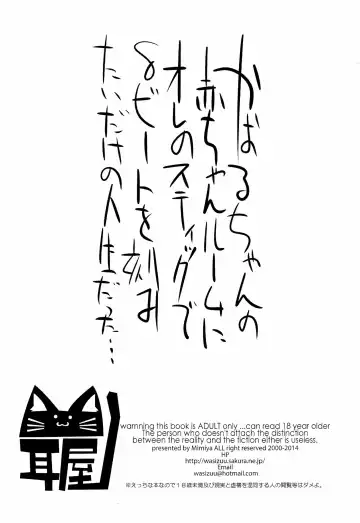 かばるちゃんの
赤ちゃんルームに
オレのスティックで
8ビートを刻み
たいだけの人生だった…
耳屋
warnning this book is ADULT only ...can read 18 year older
The person who doesn't attach the distinction
between the reality and the fiction either is useless.
presented by Mimiya ALL right reserved 2000-2014
HP
http://wasizuu.sakura.ne.jp/
Email
wasizuu@hotmail.com
※えっちな本なので18歳未満及び現実と虚構を混同する人の閲覧等はダメよ。